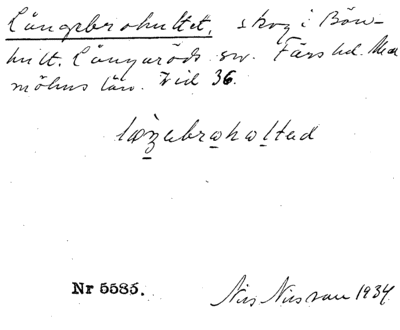 Långebrohultet, skog i Bön-
hult. Långaröds sn. Färs hd. Mal
möhus län. Vid 36.
Nr 5585.
Nils Nilsson 1934.